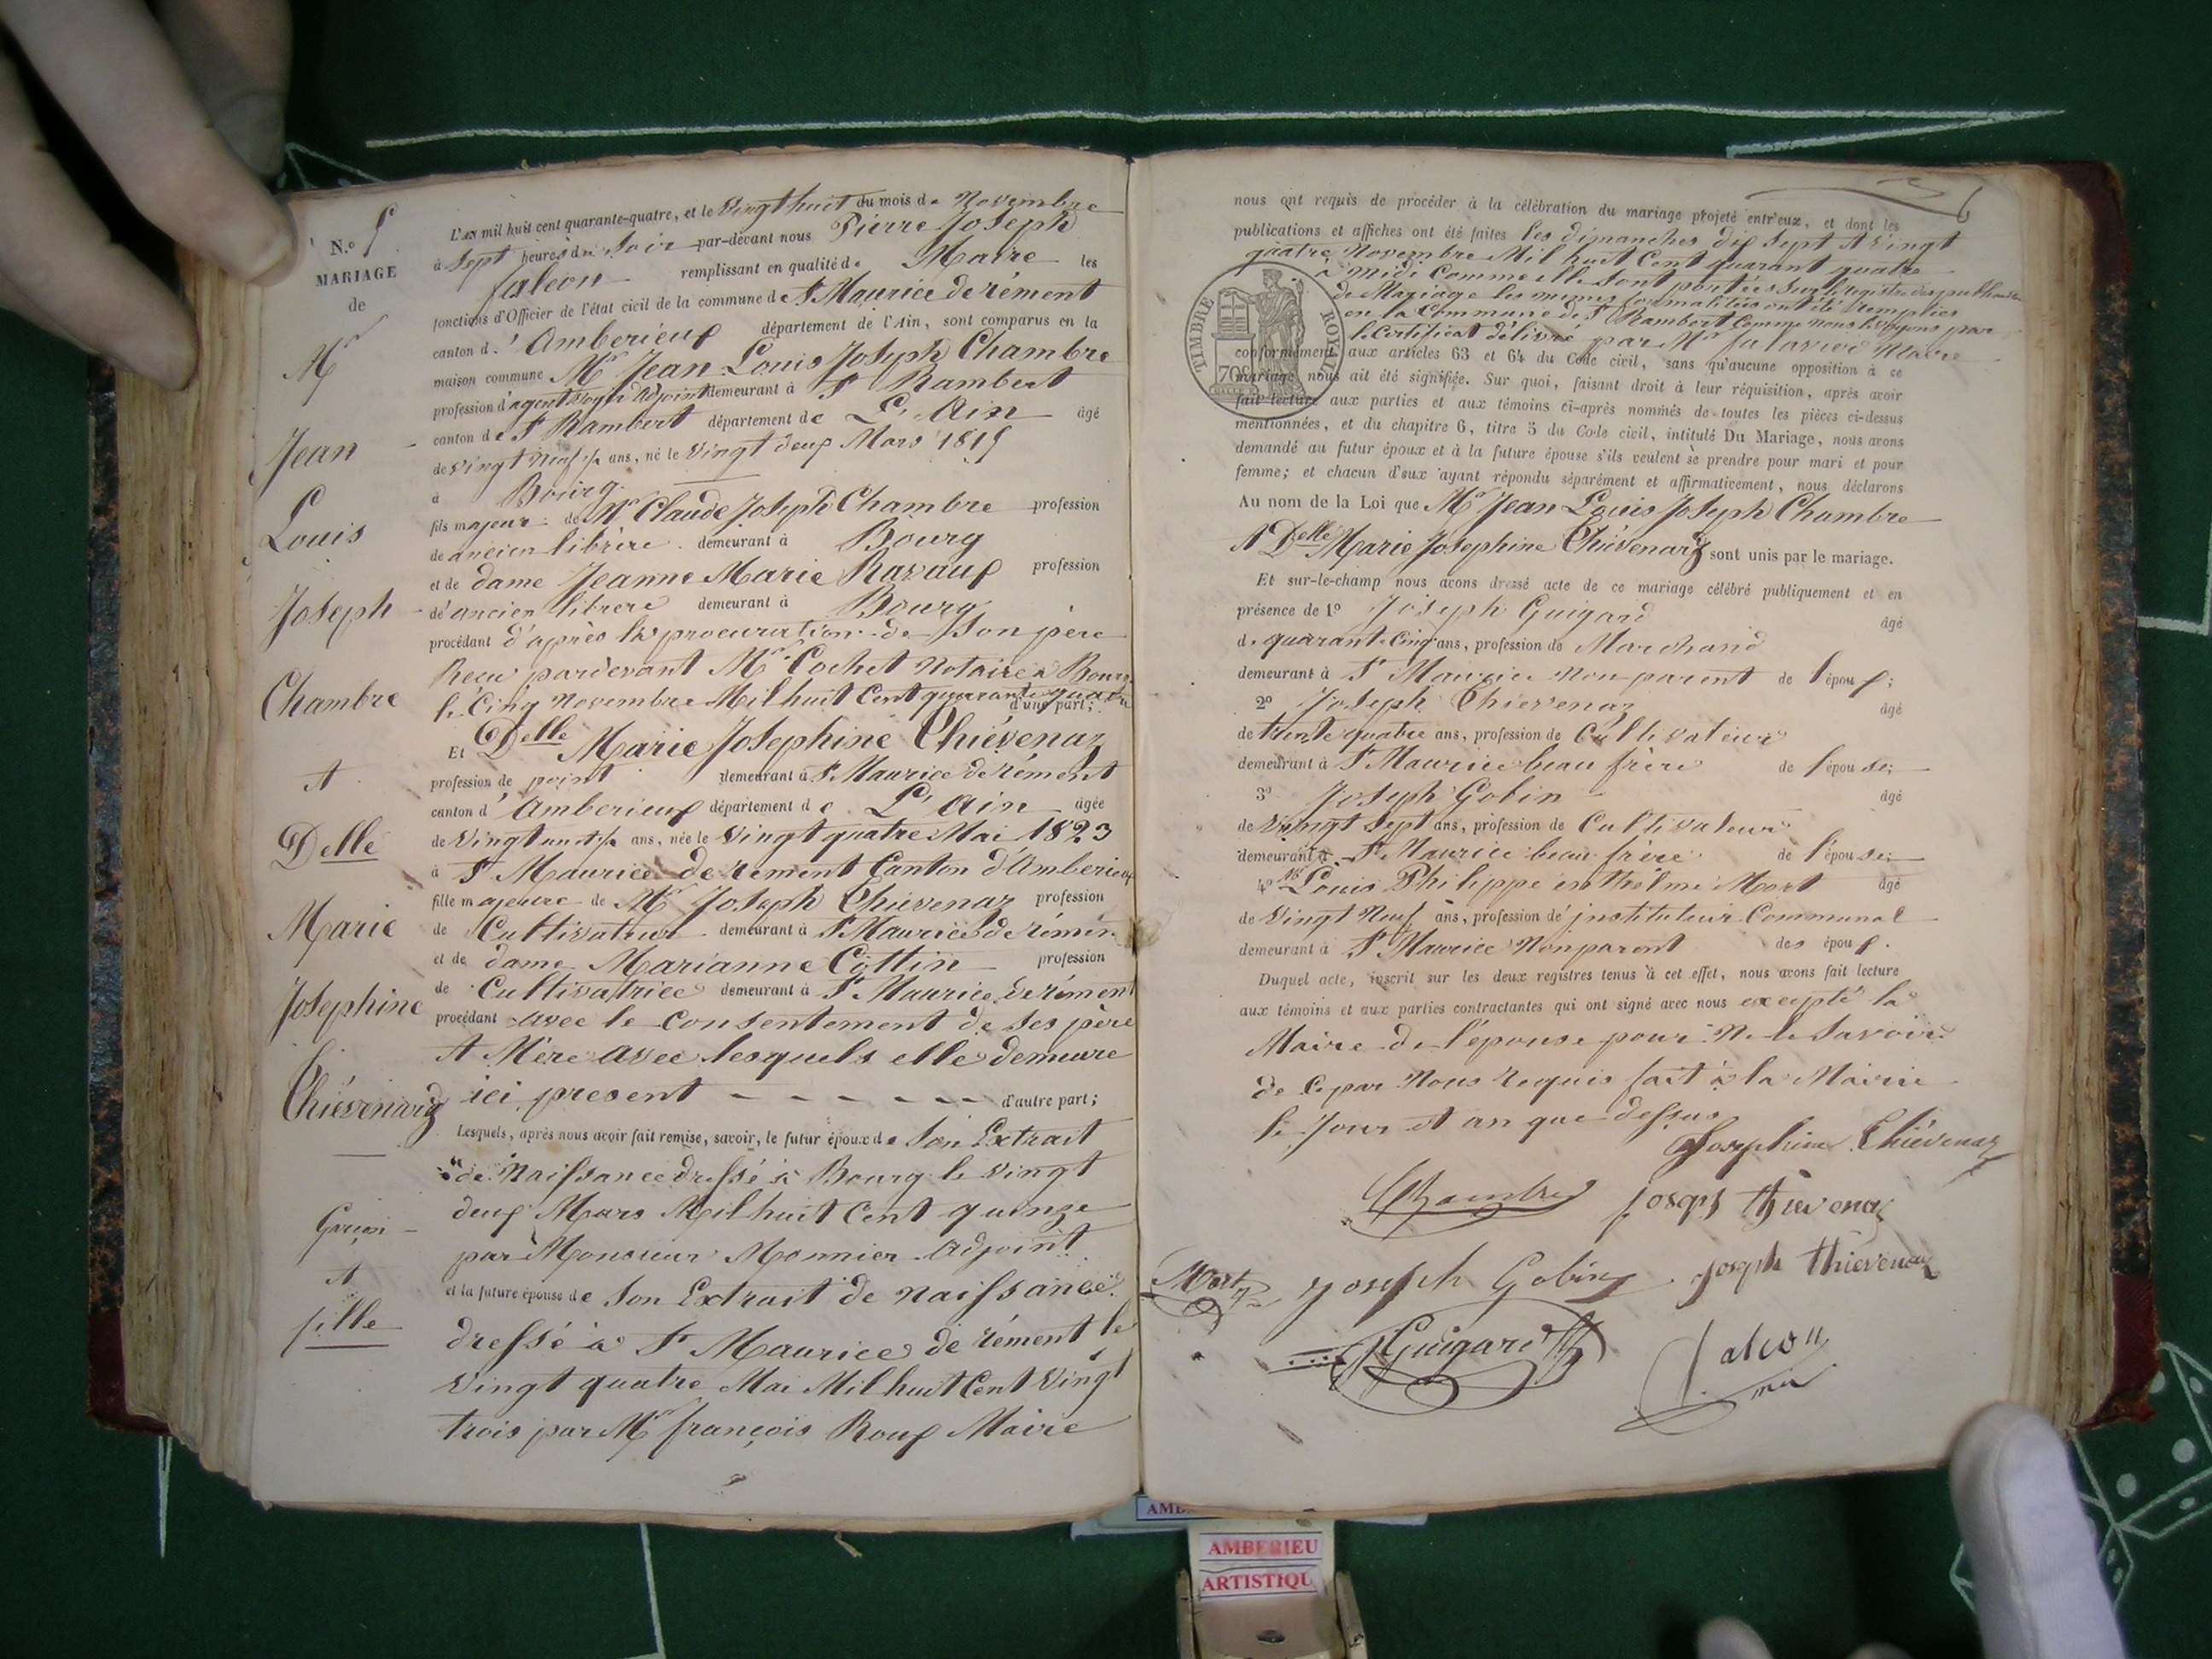 N.o 5
MARIAGE
de
Mr
Jean
Louis
Joseph
Chambre
Et
Delle
Marie
Josephine
Thiévenaz
Garçon
Et
fille
L'an mil huit cent quarante-quatre, et le Vingt huit du mois de Novembre
à Sept heures du Soir par-devant nous Pierre Joseph
falcon remplissant en qualité de Maire les
fonctions d'Officier de l'état civil de la commune de St Maurice de rément
canton d' Amberieux département de l'Ain, sont comparus en la
maison commune Mr Jean Louis Joseph Chambre
profession d'agent voyer adjoint demeurant à St Rambert
canton de St Rambert département de L'Ain âgé
de vingt neuf ans, né le Vingt deux Mars 1815
à Bourg
fils majeur de Mr Claude Joseph Chambre profession
de ancien librire demeurant à Bourg
et de dame Jeanne Marie Ravaux profession
de ancien librere demeurant à Bourg
procédant d'après la procuration de Son père
Recu pardevant Mr Cochet Notaire à Bourg
le Cinq Novembre Mil huit Cent quarante quatre
d'une part;
Et Delle Marie Josephine Thiévenaz
profession de point demeurant à St Maurice de rément
canton d' Amberieux département de L'Ain âgée
de Vingt un ans, née le Vingt quatre Mai 1823
à St Maurice de rément Canton d'Amberieux
fille majeure de Mr Joseph Thiévenaz profession
de Cultivateur demeurant à St Maurice de rémen
et de dame Marianne Cottin profession
de Cultivatrice demeurant à St Maurice de rément
procédant avec le Consentement de ses père
Et Mère avec lesquels elle demeure
ici present - - - - - - d'autre part;
Lesquels, après nous avoir fait remise, savoir, le futur époux de Son Extrait
de Naissance dressé à Bourg le Vingt
deux Mars Mil huit Cent quinze
par Monsieur Monnier Adjoint
et la future épouse de Son Extrait de naissance
dressé à St Maurice de rément le
Vingt quatre Mai Mil huit Cent Vingt
trois par Mr françois Roux Maire
nous ont requis de procéder à la célébration du mariage projeté entr'eux, et dont les
publications et affiches ont été faites les dimanches dix sept Et Vingt
quatre Novembre Mil huit Cent quarant quatre
à Midi Comme elle Sont portées Sur le registre des publications
de Mariage les memes formalités ont été remplies
en la Commune de St Rambert Comme nous le voyons par
le Certificat délivré par Mr Maire
TIMBRE ROYAL
70c
conformément aux articles 63 et 64 du Code civil, sans qu'aucune opposition à ce
mariage nous ait été signifiée. Sur quoi, faisant droit à leur réquisition, après avoir
fait lecture aux parties et aux témoins ci-après nommés de toutes les pièces ci-dessus
mentionnées, et du chapitre 6, titre 5 du Code civil, intitulé Du Mariage, nous avons
demandé au futur époux et à la future épouse s'ils veulent se prendre pour mari et pour
femme; et chacun d'eux ayant répondu séparément et affirmativement, nous déclarons
Au nom de la Loi que Mr Jean Louis Joseph Chambre
Et Delle Marie Josephine Thiévenaz sont unis par le mariage.
Et sur-le-champ nous avons dressé acte de ce mariage célébré publiquement et en
présence de 1o Joseph Guigard âgé
de quarante Cinq ans, profession de Marchand
demeurant à St Maurice Non parent de l'époux;
2o Joseph Thievenaz âgé
de trente quatre ans, profession de Cultivateur
demeurant à St Maurice beau frère de l'épouse;
3o Joseph Gobin âgé
de Vingt Sept ans, profession de Cultivateur
demeurant à St Maurice beau frère de l'épouse;
4o Mr Louis Philippe enthelme Mort âgé
de Vingt Neuf ans, profession de instituteur Communal
demeurant à St Maurice Non parent des époux.
Duquel acte, inscrit sur les deux registres tenus à cet effet, nous avons fait lecture
aux témoins et aux parties contractantes qui ont signé avec nous excepté la
Maire de l'épouse pour Ne le Savoir
de Ce par Nous Requis fait à la Mairie
le Jour et an que dessus
Josephine Thiévenaz
Chambre Joseph thievenaz
Mort Joseph Gobin Joseph thievenaz
Guigard falcon
AMBERIEU
ARTISTIQU